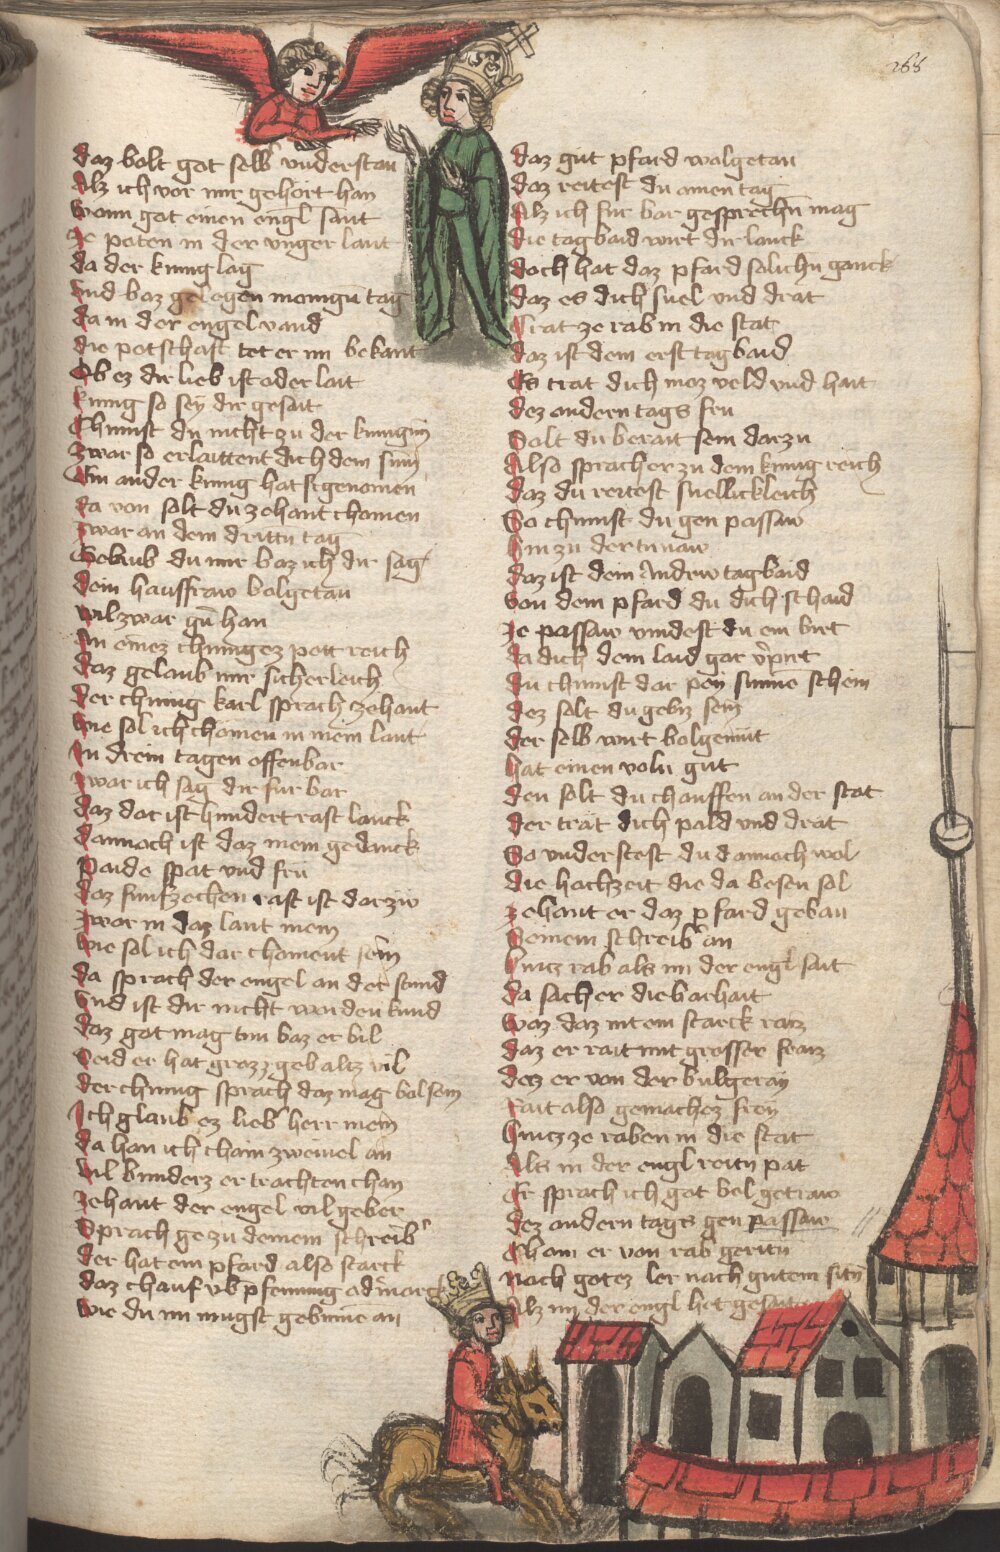 288
daz bolt got selb vnderstan
Alz ich vor mir gehort han
wann got einen engl sant
Ze poten in der vnger lant
da der kunig lag
Vnd baz gelegen monigñ tag
da in der engel vand
die potschaft tet er im bekant
Ob ez dir lieb ist oder lait
kunig so sey dir gesait
Chumst du nicht zu der kunigin
Zwar so erlauttent dich dem sinn
Ein ander kunig hat si genomen
da von solt du zehant chomen
Zwar an dem drittñ tag
Gelaub du mir baz ich dir sag
dein hauffraw bolgetan
wil zwar gũ han
In einez chunigez pott reich
daz gelaub mir sicherleich
der chunig karl sprach zehant
wie sol ich chomen in mein lant
In drein tagen offenbar
Zwar ich sag dir fur bar
daz dar ist hundert rast lanck
dannoch ist daz mein gedanck
paide spat vnd fru
daz funfzechen rast ist darzu
Zwar in daz lant mein
wie sol ich dar choment sein
da sprach der engel an der stund
Vnd ist dir nicht warden kund
daz got mag tun baz er bil
Seid er hat grozz gebaltz vil
der chunig sprach daz mag bol sein
Ich glaub ez lieb herr mein
da han ich chain zweivel an
Vil bunderz er trachten chan
Zehant der engel vil geber
Sprach ge zu deinem schreib
der hat ein pfard also starck
daz chauf vb pfenning od marck
wie du im mugst gebinne an
daz gut pfard wolgetan
daz reitest du ainen tag
Alz ich fur bar gesprechñ mag
die tagbaid wirt dir lanck
doch hat daz pfard solichñ ganck
daz es dich snel vnd drat
Trat ze rab in die stat
daz ist dein erst tagbaid
Es trat dich moz veld vnd hait
dez andern tags fru
Solt du berait sein darzu
Also sprach er zu dem kunig reich
daz du reitest snellickleich
So chumst du gen passaw
hin zu der tunaw
daz ist dein Andrew tagbaid
Von dem pfard du dich schaid
Ze passaw vindest du ein birt
da dich dem laid gar v̓pirt
du chumst dar pey sunne schein
dez solt du gebiz sein
der selb wirt bolgemut
hat einen voln gut
den solt du chauffen an der stat
der trat dich pald vnd drat
So vnderstest du dannoch wol
die hochzeit die da besen sol
Zehant er daz pfard geban
Seinem schreib an
hintz rab als im der engel sait
da sach er die barhait
Waz daz mt ein starck raiz
daz er rait mit grosser fraiz
daz er von der bulgeray
rait also gemachez frey
hintz ze raben in die stat
Als in der engl reitñ pat
Er sprach ich got bol getraw
dez andern tags gen passaw
Cham er von rab geritñ
Nach gotez ler nach gutem sitñ
Alz im der engl het gesait